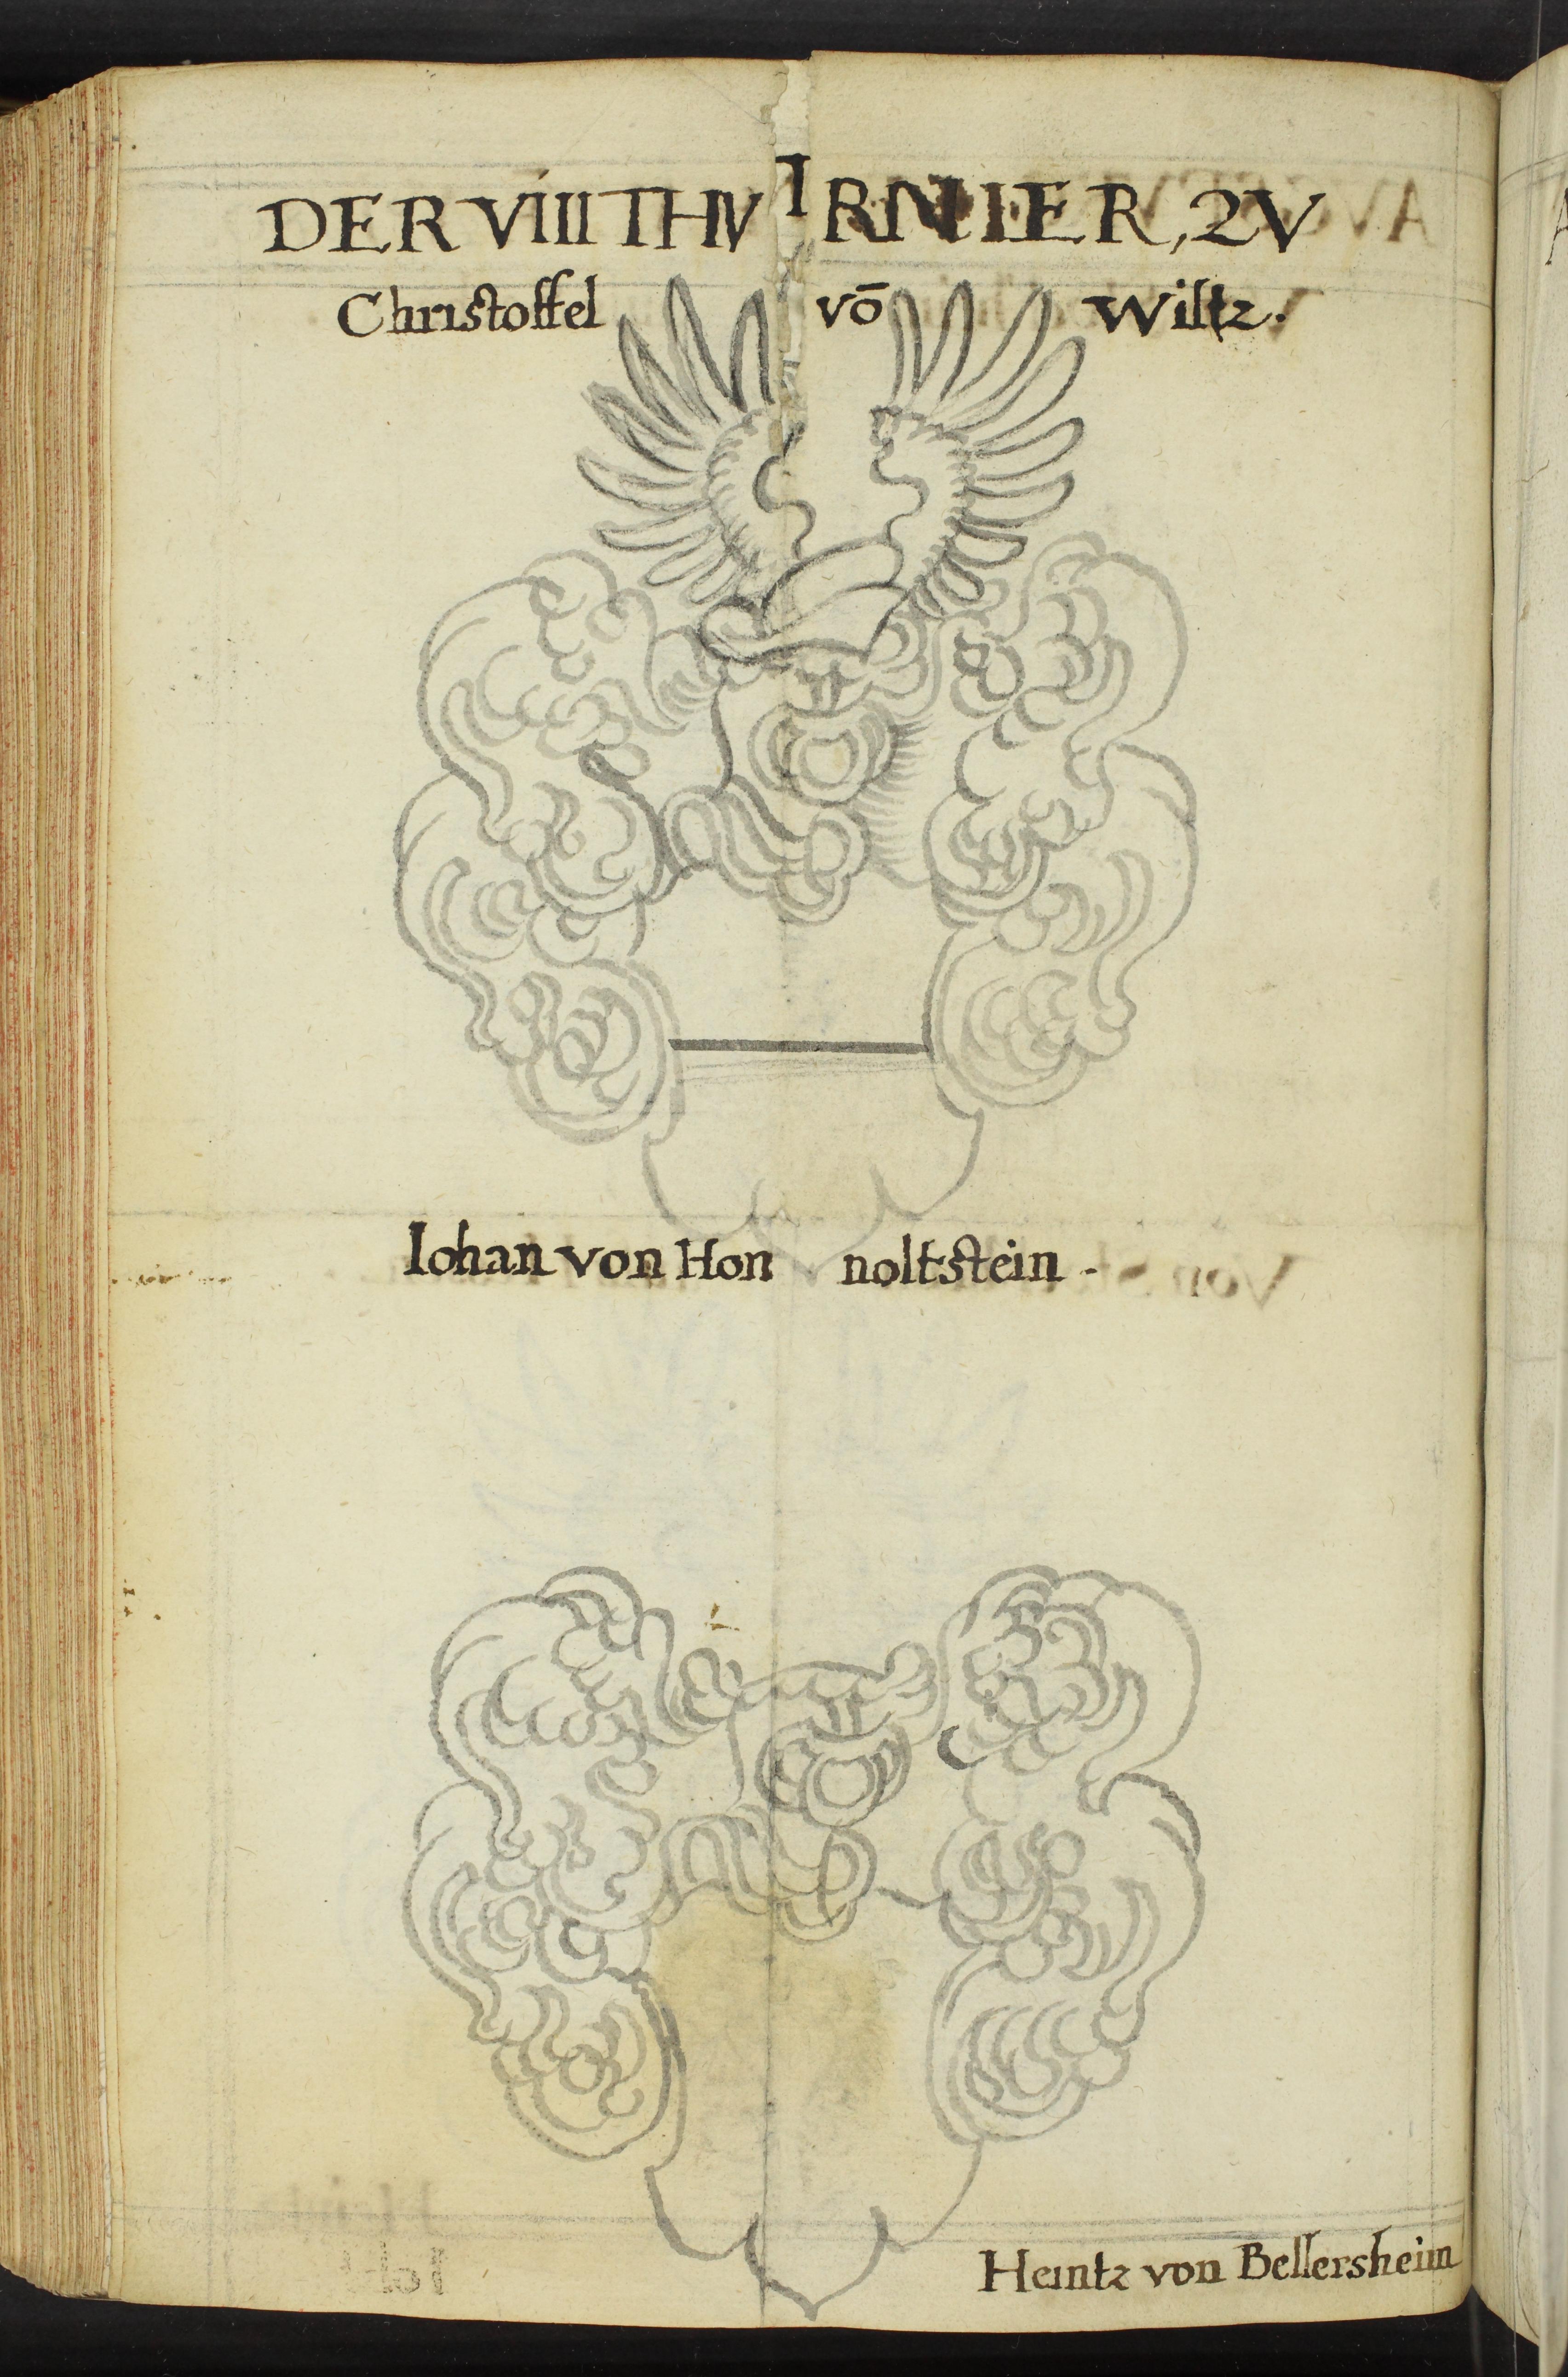 DER VIIII THVRNIER, ZV
Christoffel vō Wiltz.
Iohan von Hon noltstein.
Heintz von Bellersheim